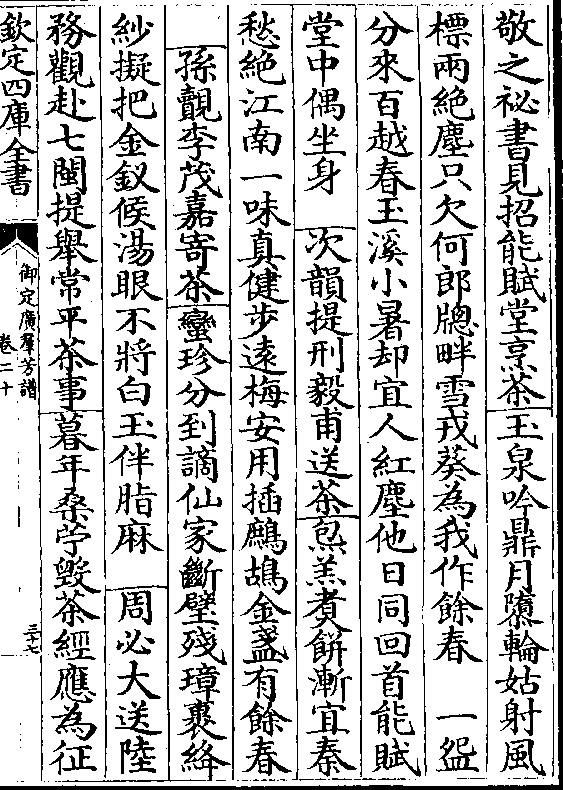 敬之祕書見招能賦堂烹茶玉泉吟鼎月隳輪姑射風
標兩絶塵只欠何郎牎畔雪戎葵為我作餘春　一甌
分來百越春玉溪小暑却宜人紅塵他日同回首能賦
堂中偶坐身　次韻提刑毅甫送茶炰羔煑餅漸宜秦
愁絶江南一味真健步遠梅安用插鷓鴣金盞有餘春
孫覿李茂嘉寄茶蠻珍分到謫仙家斷璧殘璋裹絳
紗擬把金釵候湯眼不將白玉伴脂麻　周必大送陸
務觀赴七閩提舉常平茶事暮年桑苧毀茶經應為征
欽定四庫全書
御定廣羣芳譜
卷二十
三十七